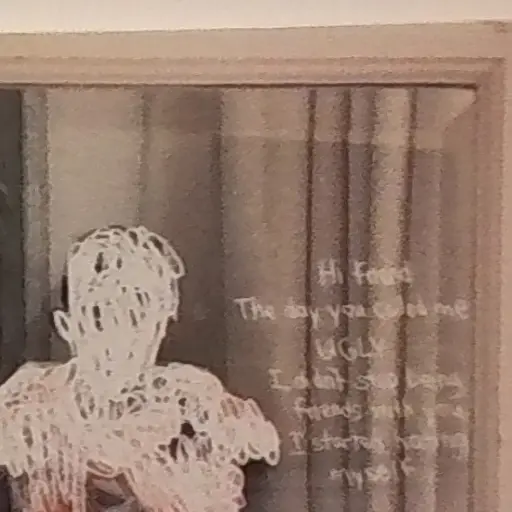 Hi friend
The day you called me
UGLY
I didn't stop being
friends with you
I started hating
myself